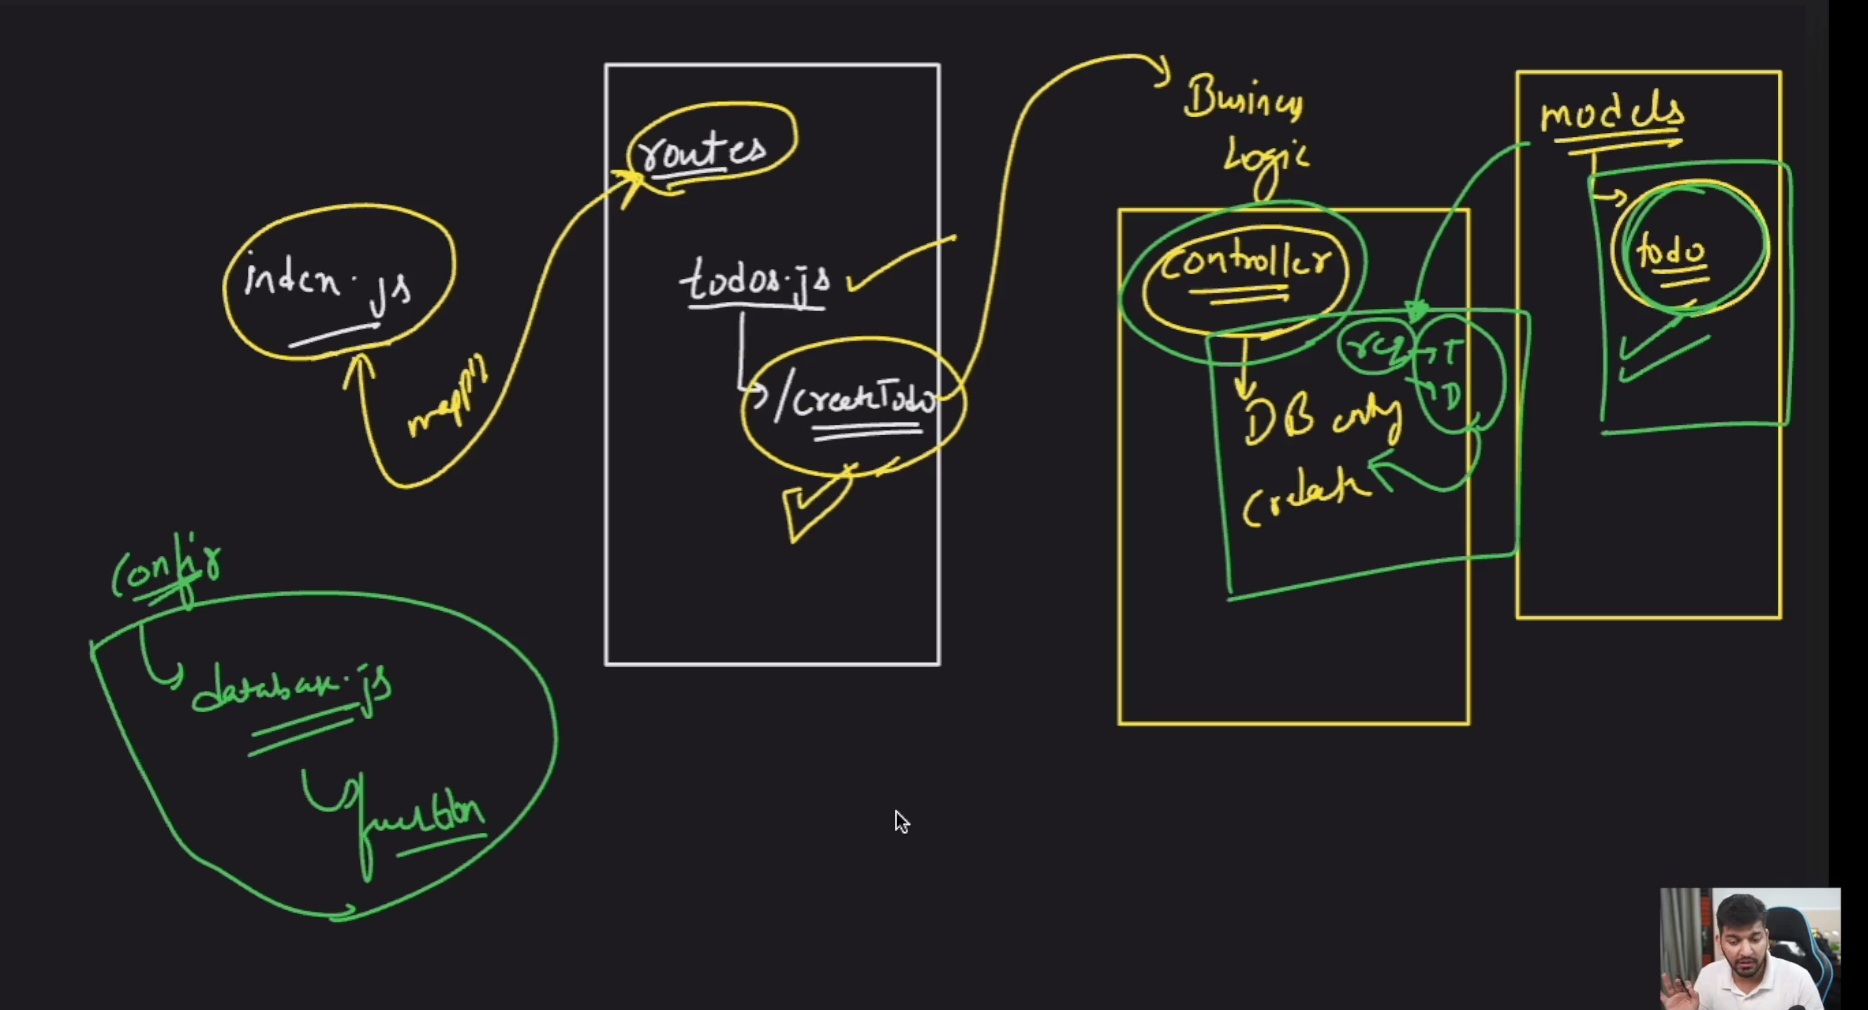 index.js
mapp'n
routes
todos.js
/createTodo
Business
Logic
controller
req → T
→ D
DB entry
create
models
todo
config
database.js
function